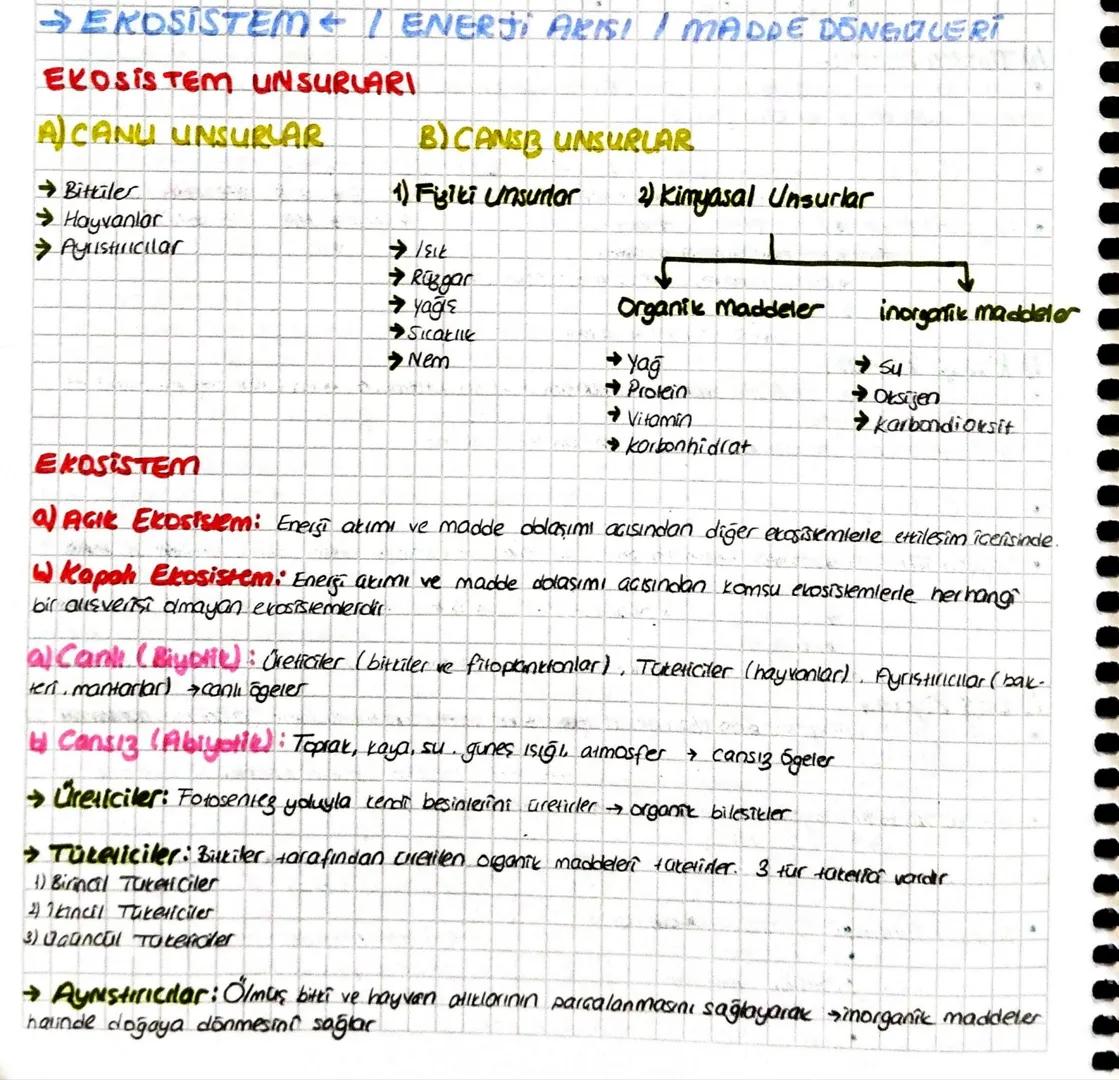 → EKOSİSTEM ← / ENERJİ AKIŞI / MADDE DÖNGÜLERİ
EKOSİSTEM UNSURLARI
A) CANLI UNSURLAR
B) CANSIZ UNSURLAR
→ Bitkiler
→ Hayvanlar
→ Ayrıştırıcılar
1) Fiziki Unsurlar
→ Işık
→ Rüzgar
→ Yağış
→ Sıcaklık
→ Nem
2) Kimyasal Unsurlar
Organik Maddeler
→ Yağ
→ Protein
→ Vitamin
→ Karbonhidrat
inorganik maddeler
→ Su
→ Oksijen
→ Karbondioksit
EKOSİSTEM
a) Açık Ekosistem: Enerji akımı ve madde dolaşımı açısından diğer ekosistemlerle etkileşim içerisinde.
b) Kapalı Ekosistem: Enerji akımı ve madde dolaşımı açısından komşu ekosistemlerle herhangi
bir alışverişi olmayan ekosistemlerdir.
a) Canlı (Biyotik): Üreticiler (bitkiler ve fitoplanktonlar), Tüketiciler (hayvanlar), Ayrıştırıcılar (bak-
teri, mantarlar) → canlı ögeler
b) Cansız (Abiyotik): Toprak, kaya, su, güneş ışığı, atmosfer → cansız ögeler
→ Üreticiler: Fotosentez yoluyla kendi besinlerini üretirler → organik bileşikler
→ Tüketiciler: Bitkiler tarafından üretilen organik maddeleri tüketirler. 3 tür tüketici vardır
1) Birincil Tüketiciler
2) İkincil Tüketiciler
3) Üçüncül Tüketiciler
→ Ayrıştırıcılar: Ölmüş bitki ve hayvan atıklarının parçalanmasını sağlayarak → inorganik maddeler
halinde doğaya dönmesini sağlar